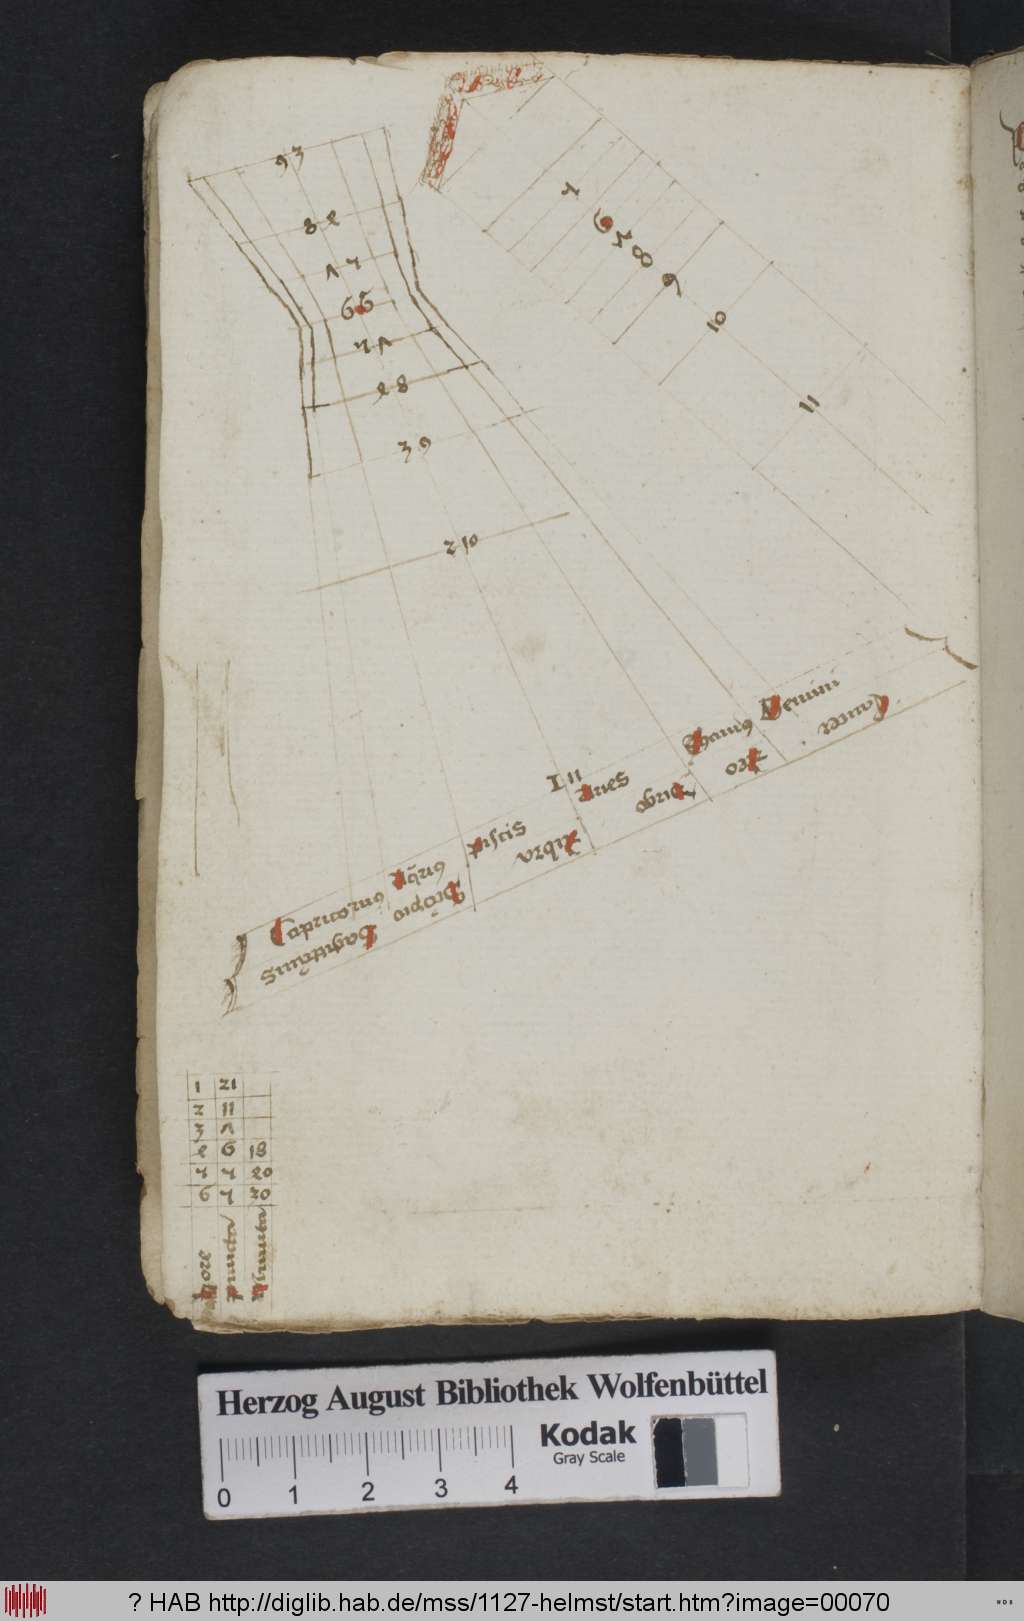 9 3
8 4
7 5
6 6
5 7
4 8
3 9
2 10
1 11
5
6
7
8
9
10
11
Capricornus
Sagittarius
Aqrius
Scorpio
Piscis
Libra
Aries
Virgo
Thaurus
Leo
Gemini
Cancer
1 21
2 11
3 7
4 6 18
5 5 40
6 5 30
hore
puncta
Minuta
Herzog August Bibliothek Wolfenbüttel
Kodak
Gray Scale
0 1 2 3 4
? HAB http://diglib.hab.de/mss/1127-helmst/start.htm?image=00070